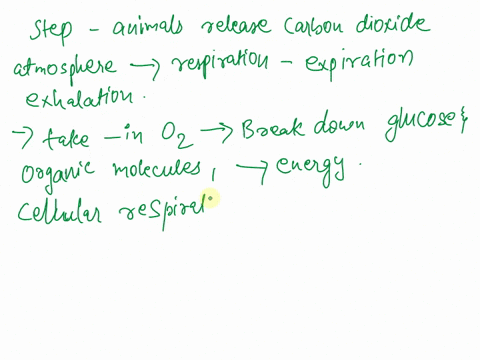 Step - animals release carbon dioxide
atmosphere → respiration - expiration
exhalation.
→ take-in O₂ → Break down glucose &
Organic molecules, → energy.
Cellular respirati